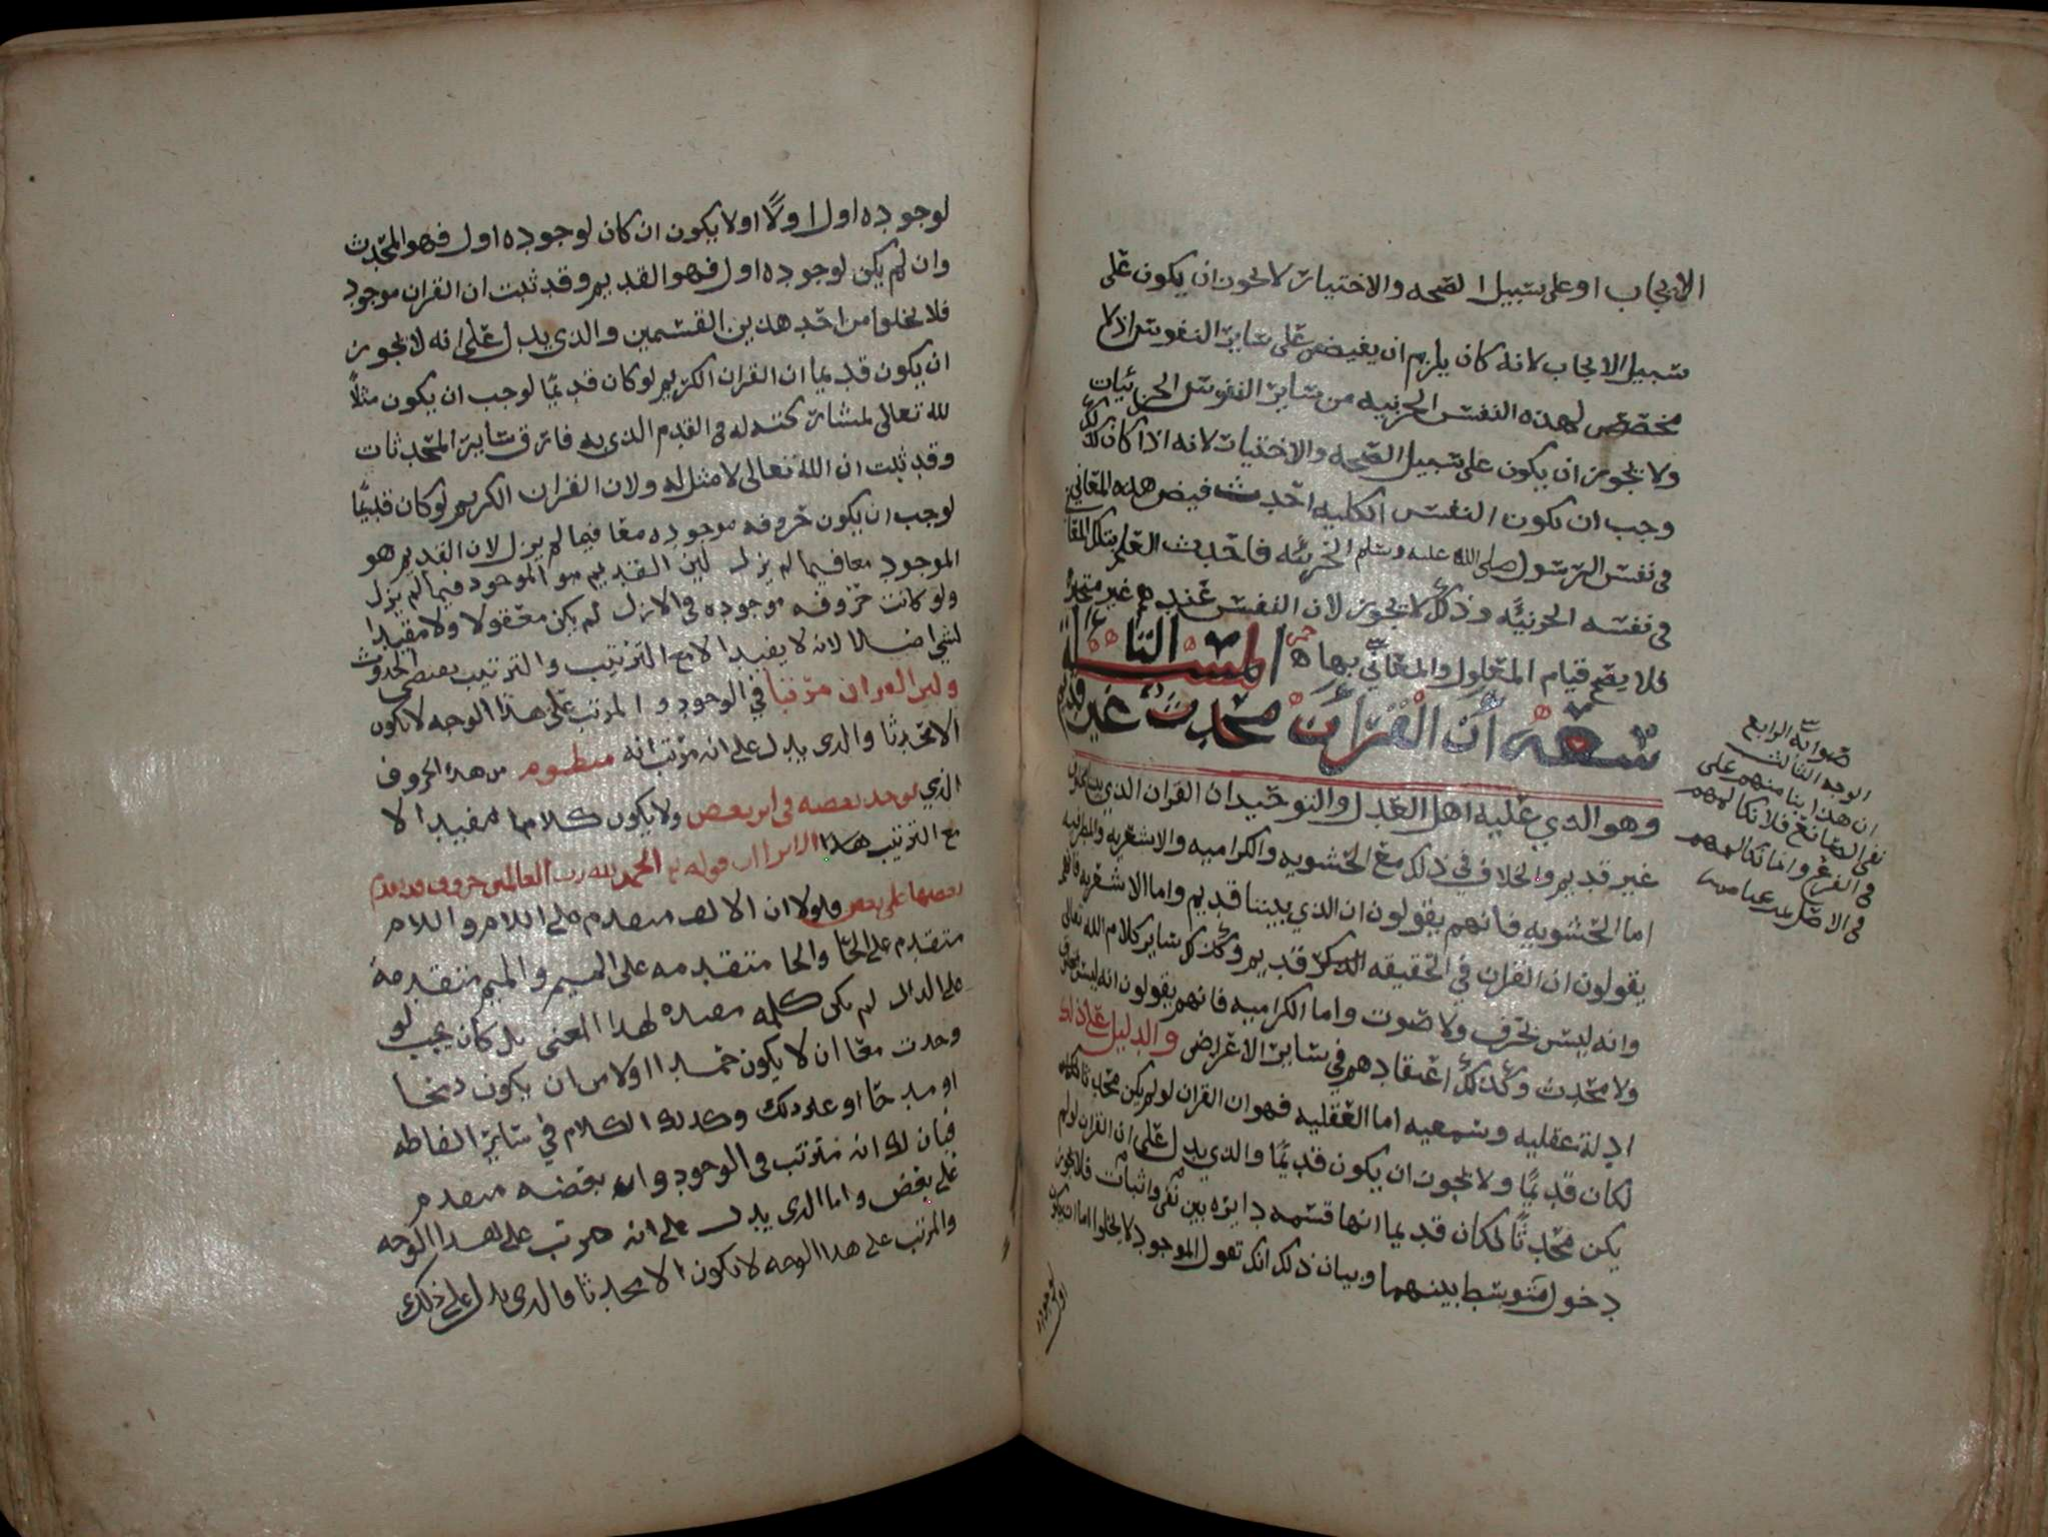 الايجاب او على سبيل الصحه والاختيار لا يجوز ان يكون على
سبيل الايجاب لانه كان يلزم ان يفيض على سائر النفوس اذ لا
مخصص لهذه النفس الجزئيه من سائر النفوس الجزئيات
ولا يجوز ان يكون على سبيل الصحه والاختيار لانه اذا كان كذلك
وجب ان تكون النفس الكليه احدث فيض هذه المعاني
في نفس الرسول صلى الله عليه وسلم الجزئيه فاحدث العلم بتلك المعاني
في نفسه الجزئيه وذلك لا يجوز لان النفس عندهم غير متحيزة
فلا يصح قيام المعلول والمعاني بها المسئلة التا
سعه ان القران محدث غير قديم
وهو الذي عليه اهل العدل والتوحيد ان القران الذي بيننا محدث
غير قديم والخلاف في ذلك مع الحشويه والكراميه والاشعريه والمطرفيه
اما الحشويه فانهم يقولون ان الذي بيننا قديم واما الاشعريه فانهم
يقولون ان القران في الحقيقه قديم وكذلك سائر كلام الله تعالى
وانه ليس بحرف ولا صوت واما الكراميه فانهم يقولون انه ليس
ولا محدث وكذلك اعتقادهم في سائر الاعراض والدليل على ذلك
ادلة عقليه وسمعيه اما العقليه فهو ان القران لو لم يكن محدثا لكان
لكان قديمًا ولا يجوز ان يكون قديمًا والذي يدل على ان القران لو لم
يكن محدثًا لكان قديما انها قسمه دايره بين نفي واثبات فلا يجوز
دخول متوسط بينهما وبيان ذلك انك تقول الموجود لا يخلوا اما ان يكون
لوجوده اول
صوابه الرابع
الوجه الثالث
ان هذا بنا منهم على
نفي الصانع فلا نكالمهم
في الفرع وانما نكالمهم
في الاصل
لوجوده اول اولًا اولا يكون ان كان لوجوده اول فهو المحدث
وان لم يكن لوجوده اول فهو القديم وقد ثبت ان القران موجود
فلا يخلوا من احد هذين القسمين والذي يدل على انه لا يجوز
ان يكون قديما ان القران الكريم لو كان قديمًا لوجب ان يكون مثلًا
لله تعالى لمشاركته له في القدم الذي به فارق سائر المحدثات
وقد ثبت ان الله تعالى لا مثل له ولان القران الكريم لو كان قديمًا
لوجب ان يكون حروفه موجوده معا فيما لم يزل لان القديم هو
الموجود معا فيما لم يزل لين القديم هو الموجود فيما لم يزل
ولو كانت حروفه موجوده في الازل لم يكن معقولا ولا مفيدا
لشي اصلا لانه لا يفيد الا مع الترتيب والترتيب يقتضي الحدوث
ولين القران مرتبا في الوجود والمرتب على هذا الوجه لا يكون
الا محدثا والذي يدل على انه مرتب انه منظوم من هذه الحروف
الذي يوجد بعضه في اثر بعض ولا يكون كلاما مفيدا الا
مع الترتيب هكذا الا ترا ان قوله تع الحمد لله رب العالمين حروف متقدم
بعضها على بعض فلولا ان الالف متقدم على اللام واللام
متقدم على الحا والحا متقدمه على الميم والميم متقدمة
على الدال لم يكن كلمه مفيده لهذا المعنى بل كان يجب لو
وجدت معًا ان لا يكون حمدا اولا من ان يكون دمحا
او مدحا او غير ذلك وكذلك الكلام في سائر الفاظه
فبان لك انه مترتب في الوجود وان بعضه متقدم
على بعض واما الذي يدل على انه مرتب على هذا الوجه
والمرتب على هذا الوجه لا يكون الا محدثا فالذي يدل على ذلك